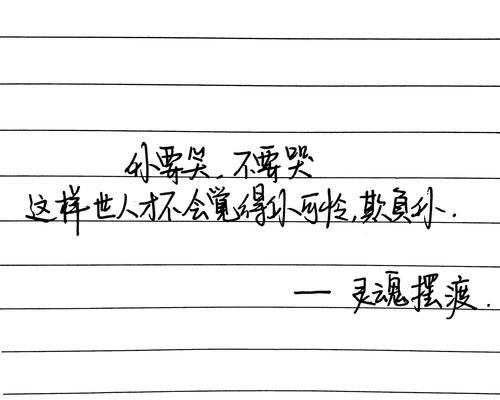 你要笑,不要哭
这样世人才不会觉得你可怜,欺负你.
— 灵魂摆渡.